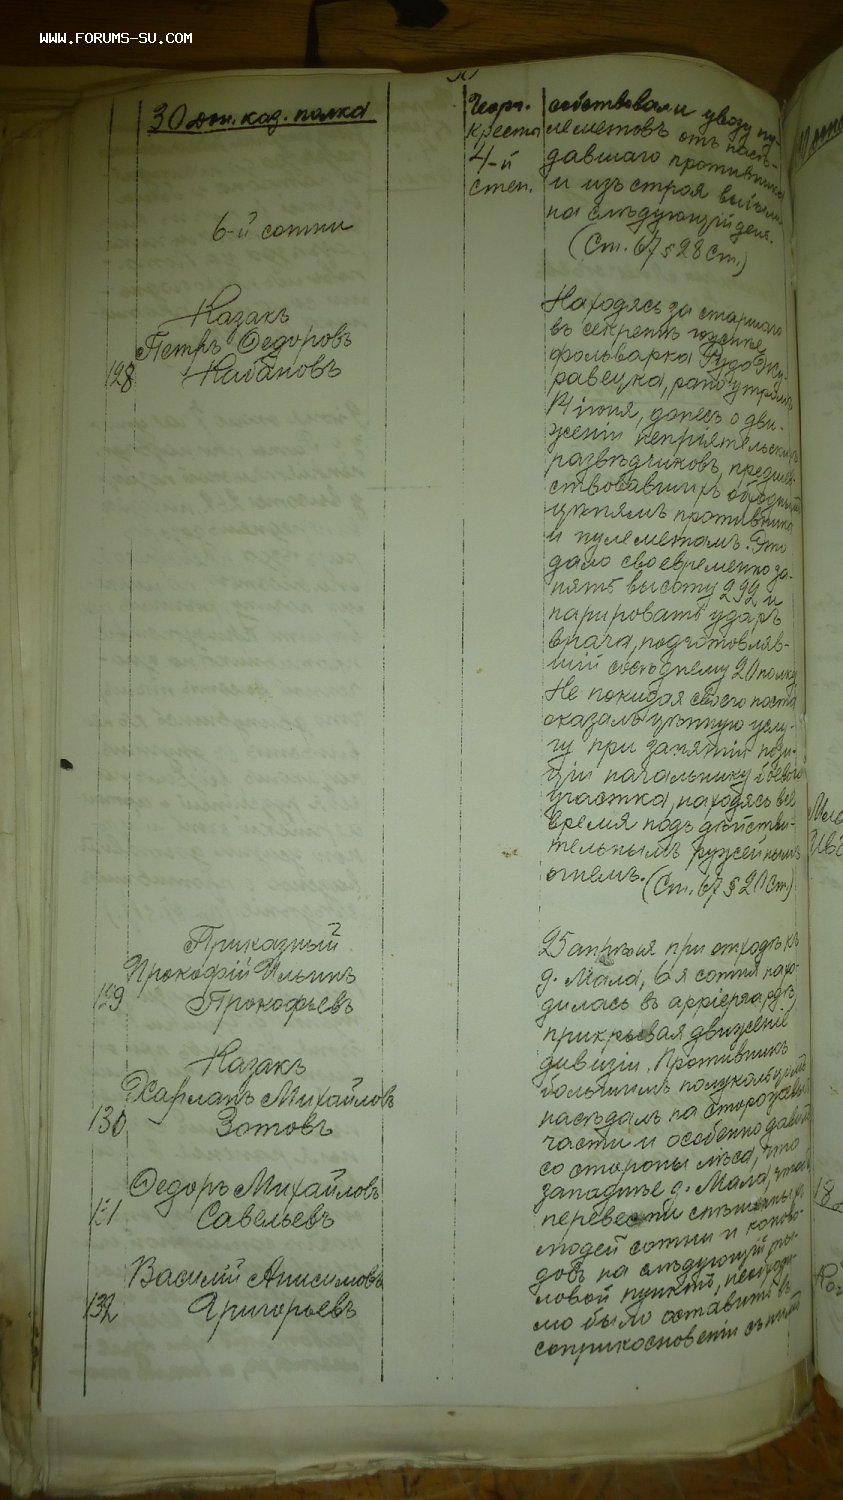 WWW.FORUMS-SU.COM
30 дон. каз. полка
6-й сотни
Казакъ
Петръ Федоровъ
128 Кабановъ
Приказный
Прокофій Ильинъ
129 Прокофьевъ
Казакъ
Харлапъ Михайловъ
130 Зотовъ
Федоръ Михайловъ
131 Савельевъ
Василій Анисимовъ
132 Григорьевъ
Георг.
креста
4-й
степ.
собствовали увозу пу-
леметовъ отъ насѣ-
давшаго противника
и изъ строя выбыли
на слѣдующій день.
(Ст. 67 § 28 Ст.)
Находясь за старшаго
въ секретѣ южнѣе
фольварка Рудо Жу-
равецка, рано утромъ
14 іюня, донесъ о дви-
женіи непріятельскихъ
развѣдчиковъ, предшев-
ствовавшихъ обходнымъ
цѣпямъ противника
и пулеметамъ. Это
дало своевременно за-
нять высоту 292 и
парировать ударъ
врага, подготовляв-
шій сосѣднему 20 полку
Не покидая своего поста
оказалъ цѣнную услу-
гу при занятіи пози-
ціи начальнику боевого
участка, находясь все
время подъ дѣйстви-
тельнымъ ружейнымъ
огнемъ. (Ст. 67 § 20 Ст.)
25 апрѣля при отходѣ къ
д. Мала, 6-я сотня нахо-
дилась въ арріергардѣ,
прикрывая движеніе
дивизіи. Противникъ
большимъ полукольцомъ
насѣдалъ на сторожевыя
части и особенно давилъ
со стороны лѣса, что
западнѣе д. Мала, чтобъ
перевести спѣшенныхъ
людей сотни и коново-
довъ на слѣдующій ты-
ловой пунктъ, необходи-
мо было оставить въ
соприкосновеніи съ нимъ